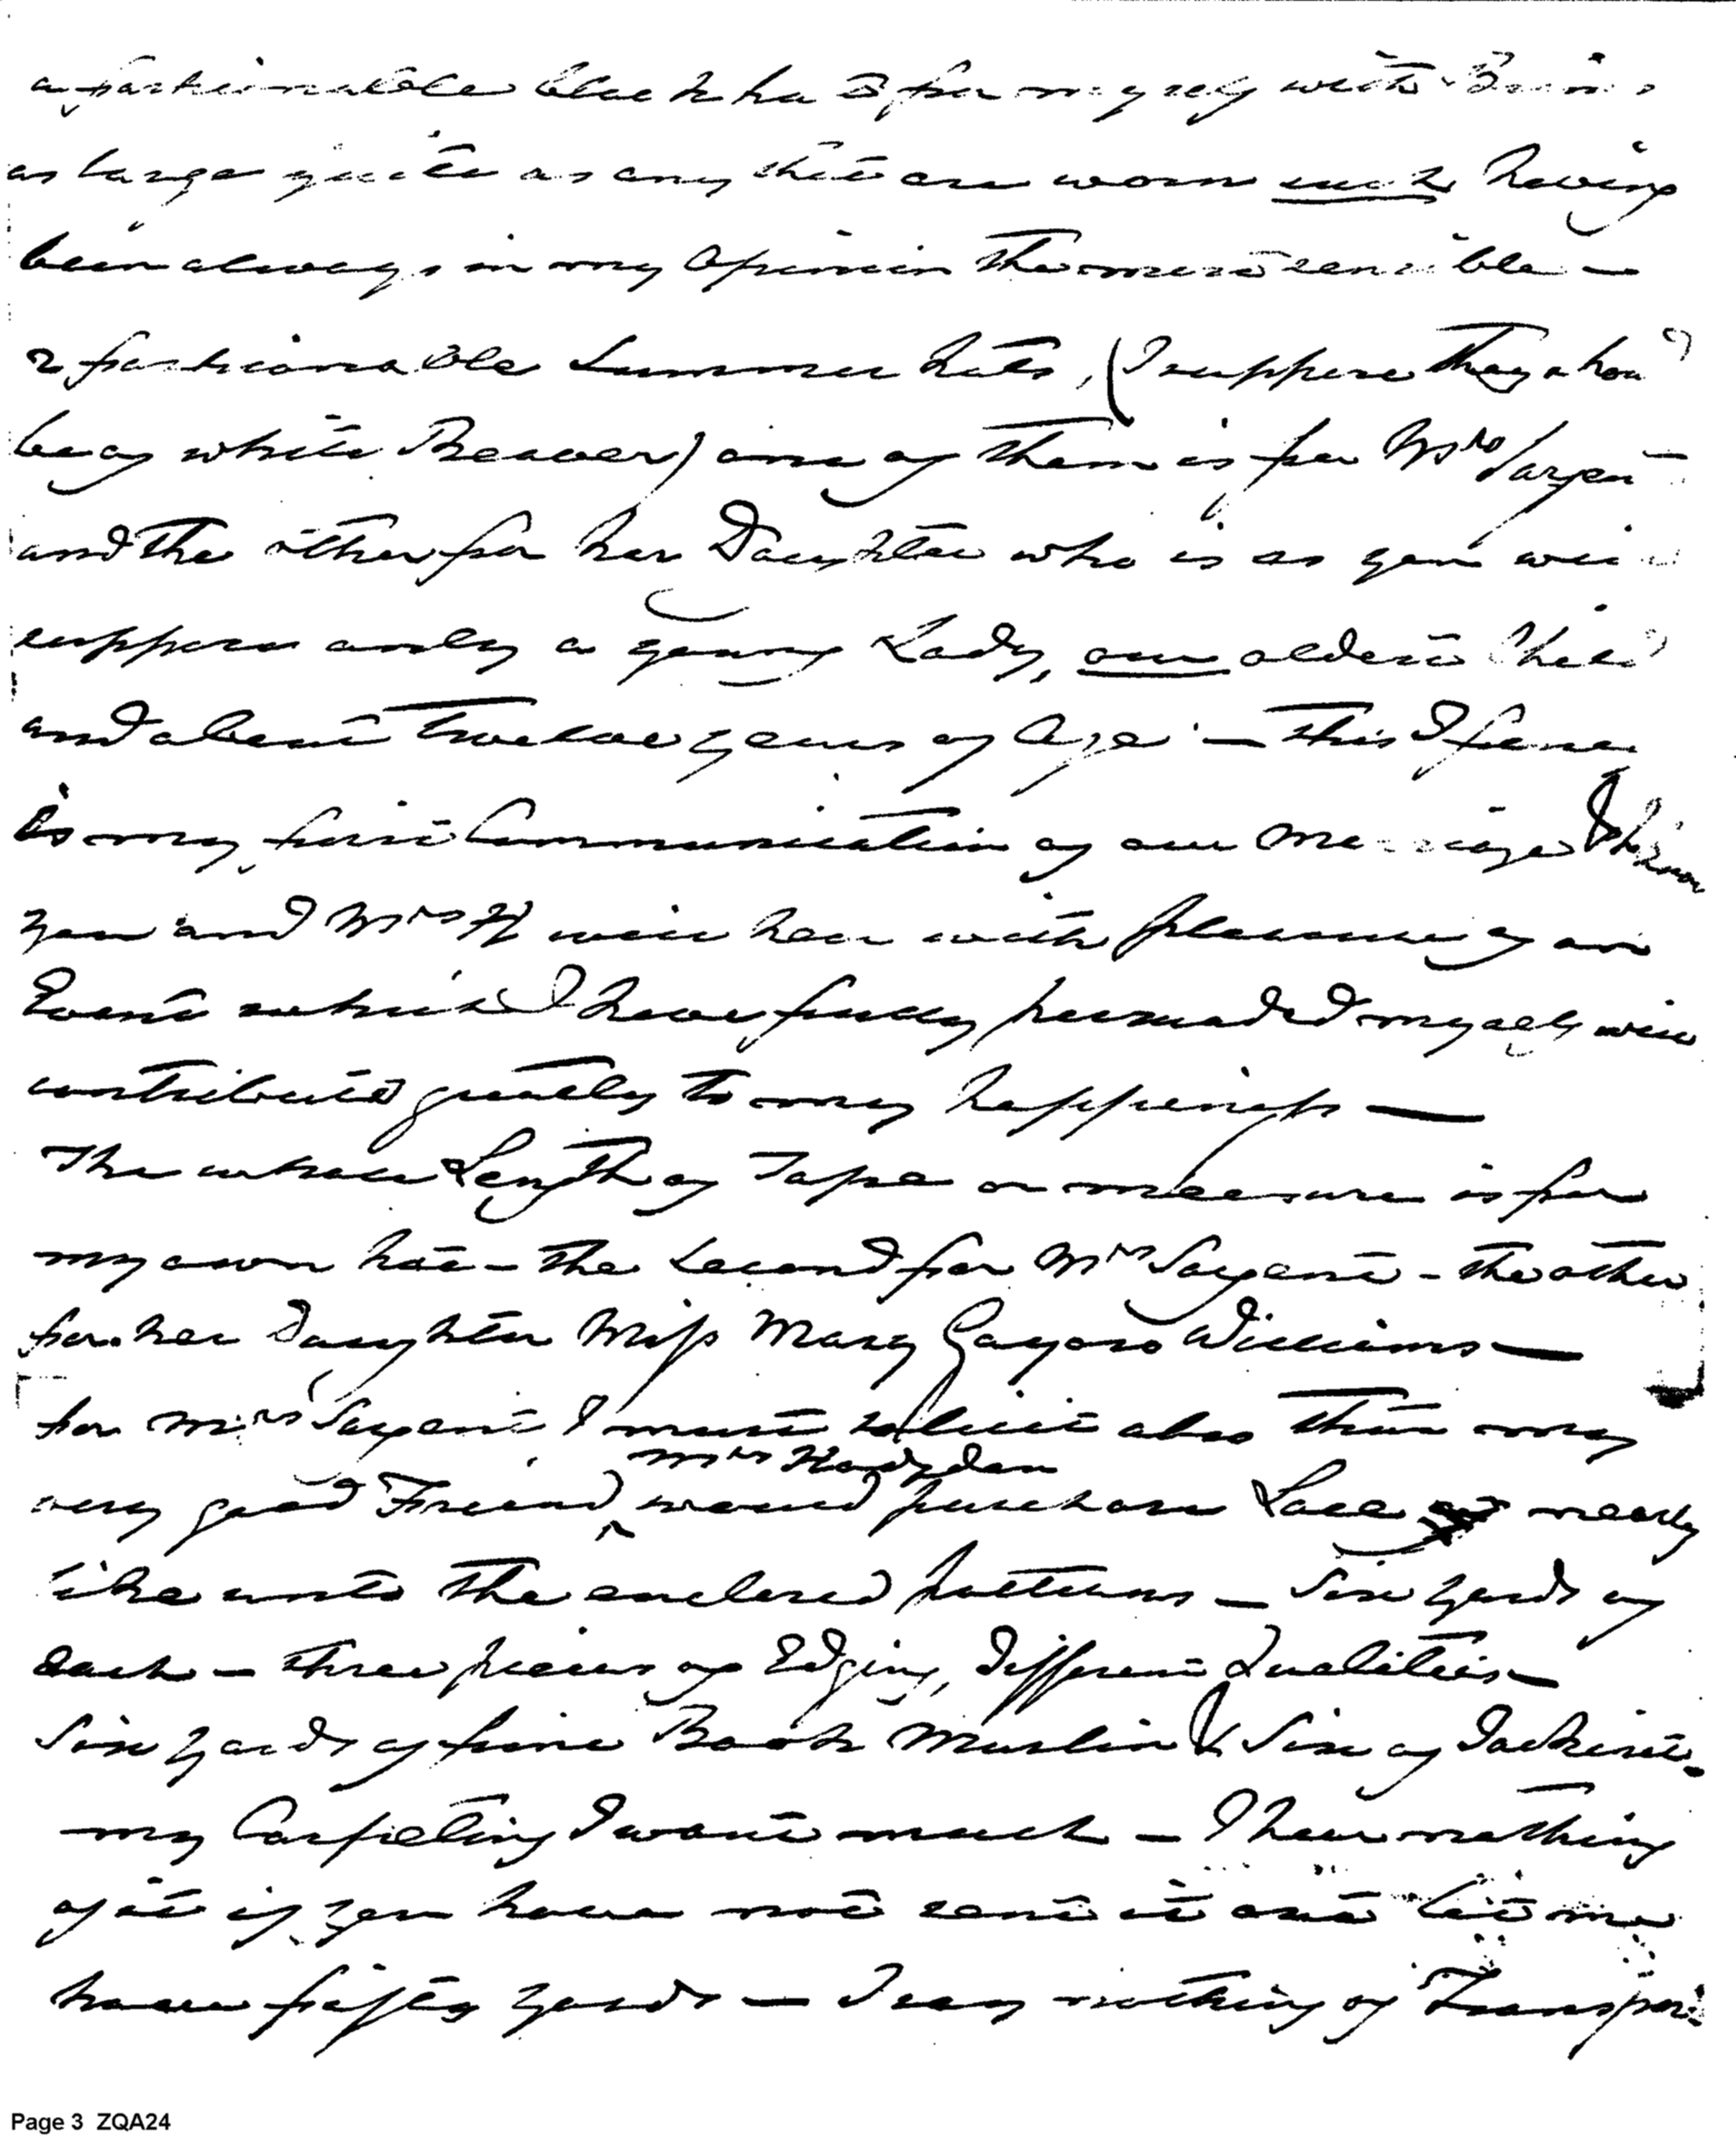 a fashionable black hat for myself with Brims
as large quite as any that are worn such having
been always in my Opinion the most sensible —
2 fashionable Summer hats, (I suppose they shou'd
be of white Beaver) one of them is for Mrs Sargent
and the other for her Daughter who is as you will
suppose only a young Lady, our oldest Child
and about Twelve years of Age — This I fancy
is my first Communication of our Marriage & I know
you and Mrs H will hear with pleasure of an
Event which I have fully persuaded myself will
contribute greatly to my happiness —
The whole Length of Tape or measure is for
my own hat — the Second for Mrs Sargent — the other
for her Daughter Miss Mary Gayoso Williams —
for Mrs Sargent I must solicit also that my
Mrs Hodgdon
very good Friend ^ would purchase Lace nearly
like unto the enclosed patterns — Six yards of
each — three pieces of Edging, different Qualities —
Six yards of fine Book Muslin & Six of Jackinet —
my Carpeting I want much — I hear nothing
of it if you have not sent it out let me
have fifty yards — I say nothing of Transpor
Page 3 ZQA24